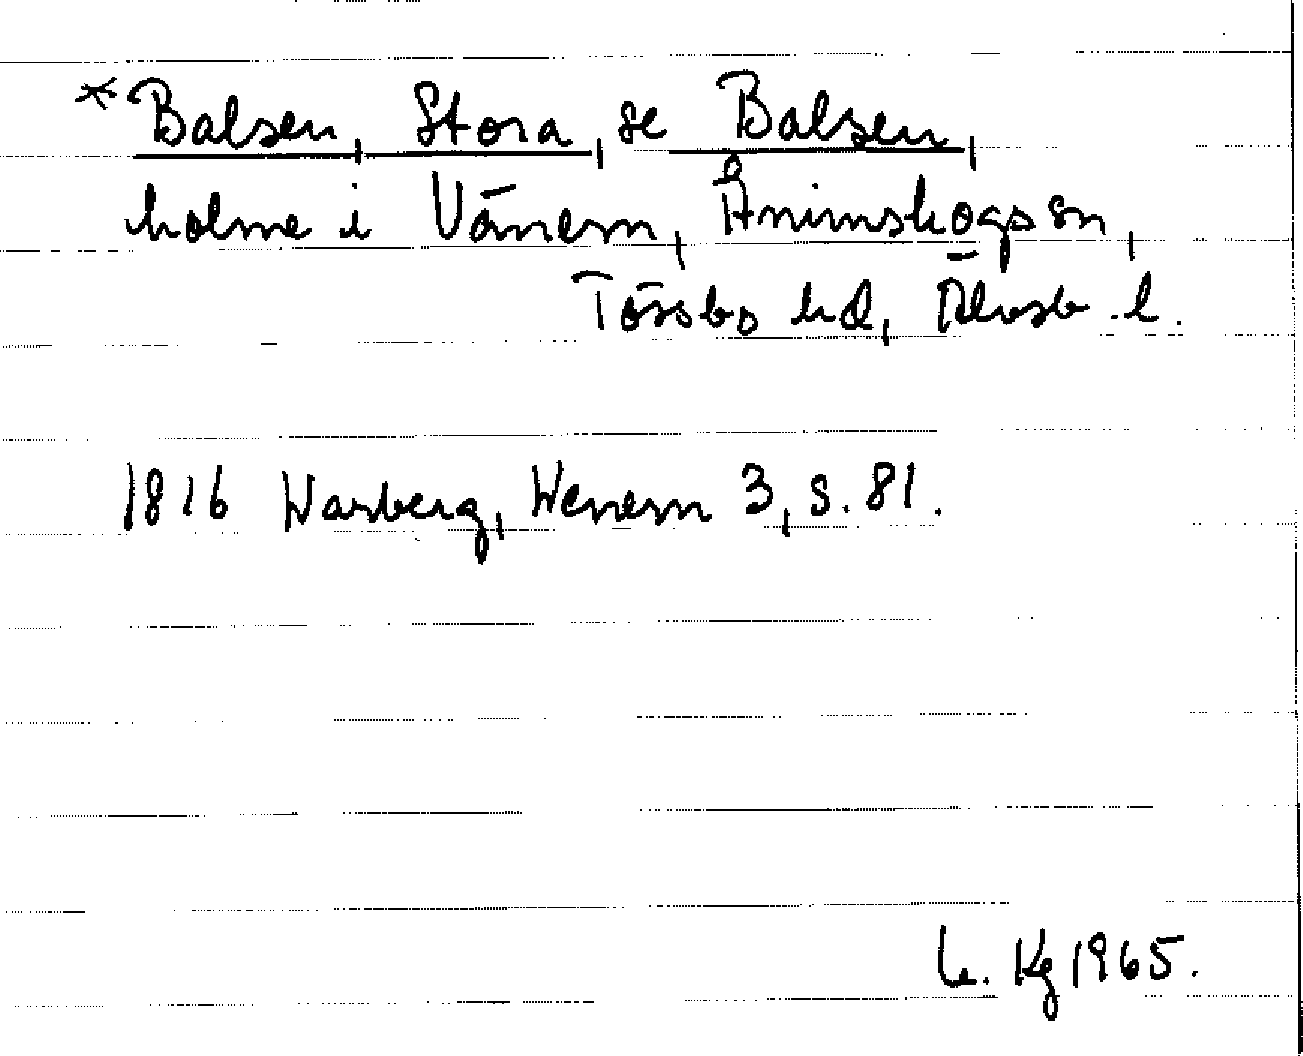 *Balsen, Stora, se Balsen,
holme i Vänern, Ånimskogs sn,
Tössbo hd, Älvsb. l.
1816 Warberg, Wenern 3, s. 81.
Kg 1965.